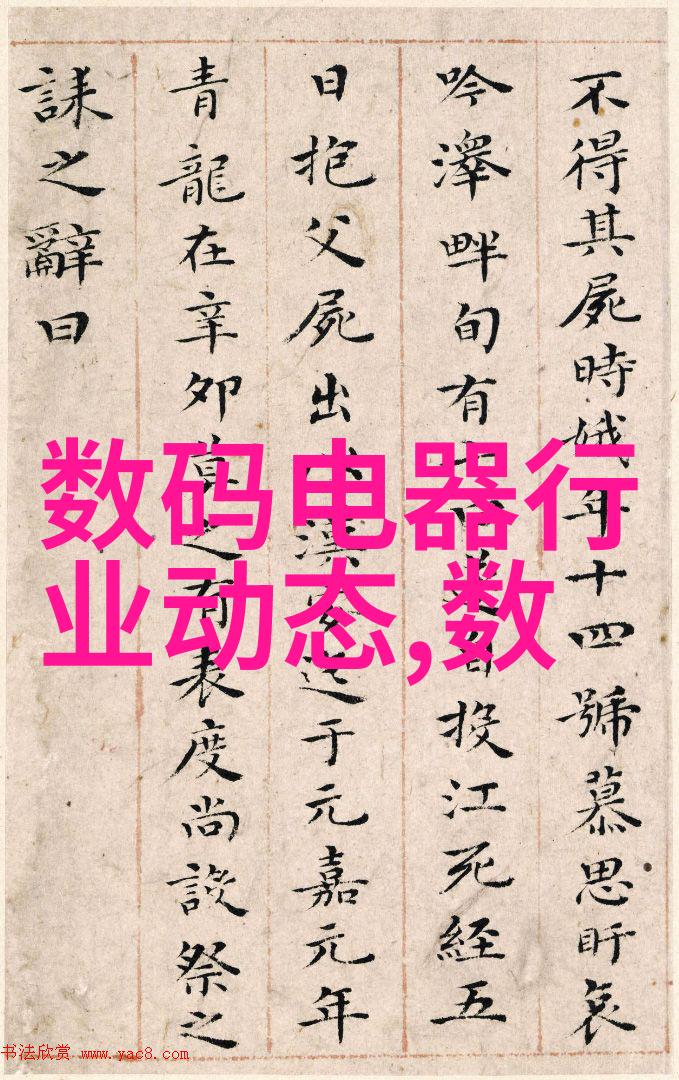 不得其屍時娥年十四號慕思盱哀
吟澤畔旬有自投江死經五
日抱父屍出漢安迄于元嘉元年
青龍在辛卯莫之有表度尚設祭之
誄之辭曰
数码电器行
业动态,数
书法欣赏 www.yac8.com